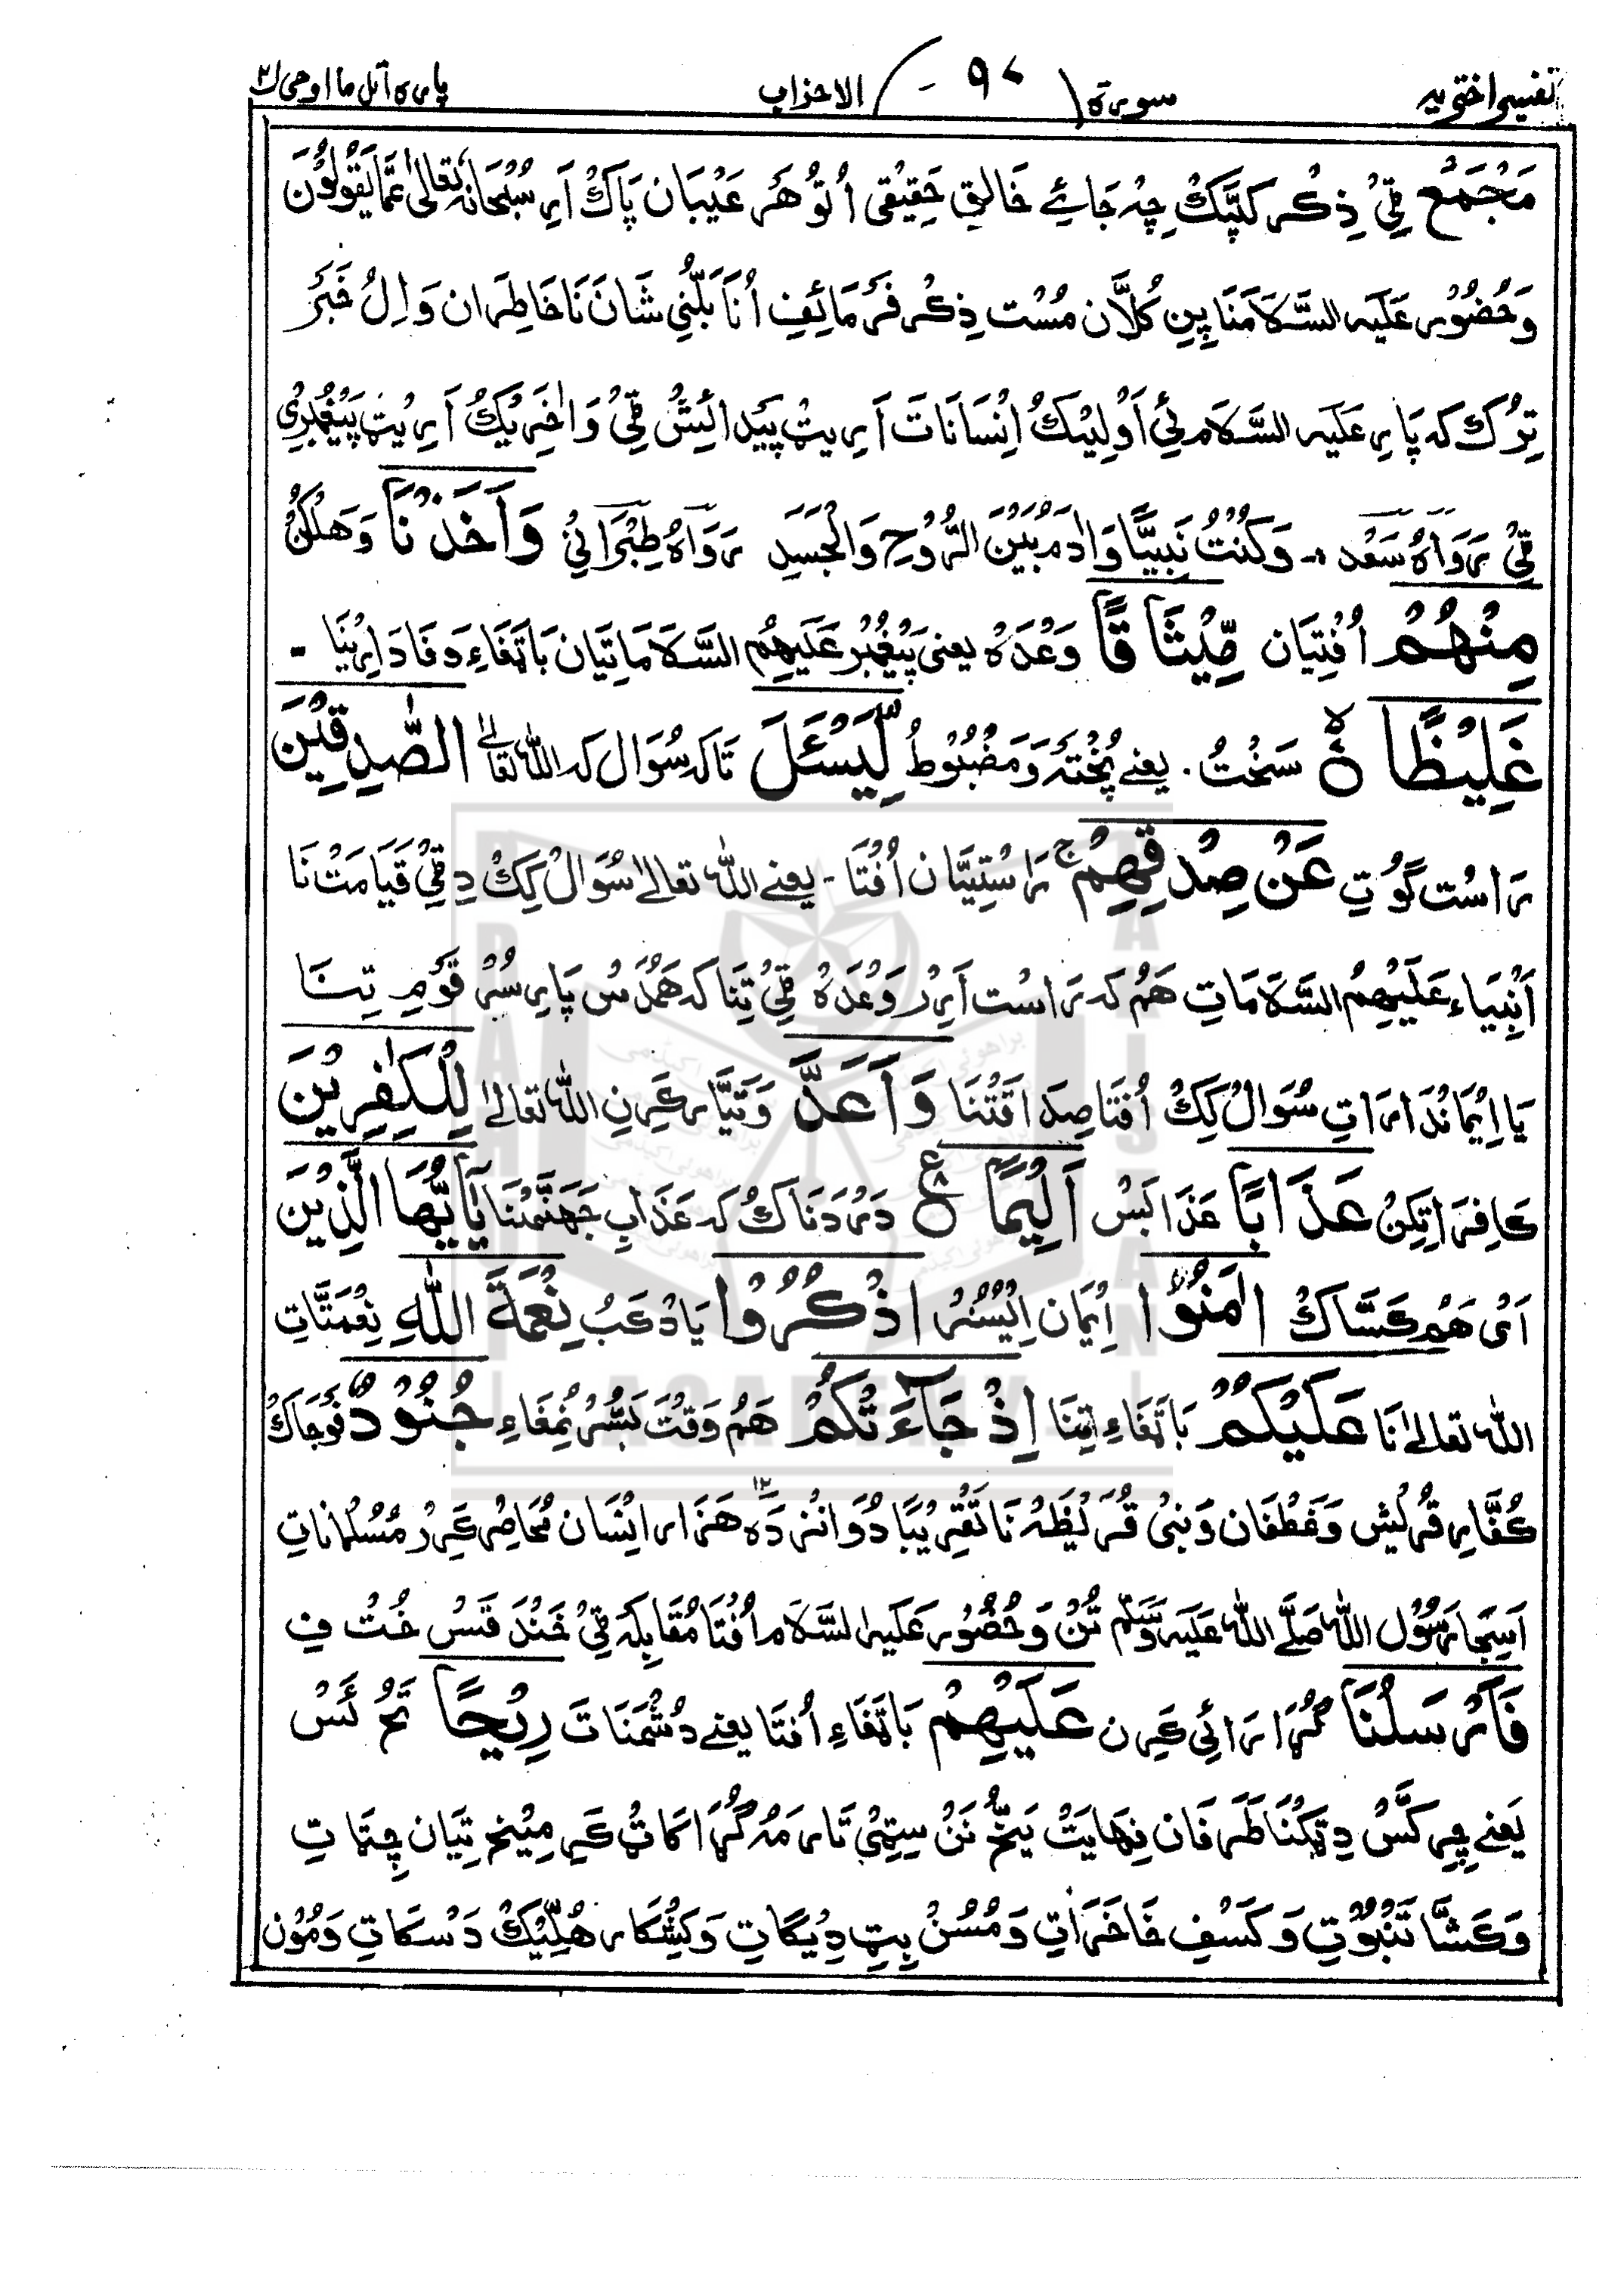 تفسیر اختریہ سورة ۹۷ الاحزاب پارہ اتل ما اوحی ۲۱
مَجْمَعْ ٹِیْ ذِکْر کَپَّکْ چِہْ جَائے خَالِقِ حَقِیْقِی اُتُو هَر عَیْبَان پَاكْ اَرِ سُبْحَانَہٗ تَعَالیٰ عَمَّا یَقُوْلُوْنَ
وَحُضُوْر عَلَیہِ السَّلَامنَا پِنِ کُلَّان مُسْت ذِکْر فَرْمَائِفِ اُنَا بَلُّنِی شَانَ نَا خَاطِرَان وَ اِلُ خَبَرْ
تِرُك کہ پَارِ عَلَیہِ السَّلَام ئِی اَوْلِیْكُ اِنْسَانَاتَ اَرِیٹ پَیْدَائِشْ ٹِیْ وَاٰخَرِیْكُ اَرِیٹ پَیْغَمْبَرِی
ٹِیْ رَوَاہُ سَعْد ۔ وَکُنْتُ نَبِیًّا وَاٰدَمُ بَیْنَ الرُّوْحِ وَالْجَسَدِ رَوَاہُ طِبْرَانِیْ وَاَخَذْنَا وَهَلْکُنْ
مِنْهُمْ اُفْتِیَان مِّیْثَاقًا وَعْدَہ یعنی پَیْغَمْبَر عَلَیْهِمُ السَّلَامَاتِیَان بَاتَغَاءِ وَفَادَارِیْنَا ۔
غَلِیْظًا ۙ سَخْتْ ۔ یعنے پُخْتَہ وَ مَضْبُوْط لِّیَسْئَلَ تَا کہ سُوَال کہ اللہ تعالےٰ الصّٰدِقِیْنَ
رَاسْت گوْتِ عَنْ صِدْقِهِمْ ج رَاسْتِیَان اُفْتَا ۔ یعنے اللہ تعالےٰ سُوَالْ کِكْ دِٹِیْ قَیَامَتْنَا
اَنْبِیَاء عَلَیْهِمُ السَّلَامَاتِ هَم کہ رَاسْت اَرِر وَعْدَہ ٹِیْ تِنَا کہ هَمْدُسْ پَارِسُر قَوْمِ تِنَا
یَا اِیْمَانْدَارَاتِ سُوَالْ کِكْ اُفْتَا صِدَاقَتْنَا وَاَعَدَّ وَتَیَّار کَرِنِ اللہ تعالےٰ لِلْکٰفِرِیْنَ
کَافِرَاتِکِنْ عَذَابًا عَذَابَسْ اَلِیْمًا ۧ دَرْدَنَاكْ کہ عَذَابِ جَهَنَّمْنَا یٰۤاَیُّهَا الَّذِیْنَ
اَیْ هَم کَسَّاكْ اٰمَنُوا اِیْمَان اِیْسُنُرْ اذْکُرُوْا یَادْ کَبُ نِعْمَةَ اللّٰهِ نِعْمَتَّاتِ
اللہ تعالےٰ نَا عَلَیْکُمْ بَاتَغَاءِ تِنَا اِذْ جَآءَتْکُمْ هَم وَقْتْ بَسُّر نُمغَاءِ جُنُوْدٌ فَوْجَاكْ
کُفَّارِ قُرَیْش وَغَطْفَان وَبَنِیْ قُرَیْظَہ نَا تَقْرِیْبًا دُوَانْزدَہ ۱۲ هَزَار اِنْسَان مُحَاصِر کَرِر مُسُلْمَانَاتِ
اَسِجَا رَسُوْل اللہ صَلَّے اللہ عَلَیہِ وَسَلَّم تُنْ وَحُضُوْر عَلَیہ السَّلَام اُفْتَا مُقَابِلَہ ٹِیْ خَنْدَقَسْ خُتْ فِ
فَاَرْسَلْنَا گُڑَا رَائِی کَرِن عَلَیْهِمْ بَاتَغَاءِ اُفْتَا یعنے دُشْمَنَاتَ رِیْحًا تَھُ لَسْ
یَعْنے چِرِ کَسَّ دِتِکْنَا طَرَفَان نِهَایَتْ یَخْ نَنْ سِتْہِیْ تَارمَہ گُڑَا کَاٹ کَرِ مِیْخ تِیَان چِتَاتِ
وَکَشَّا تَنْبُوْتِ وَکَسْفِ خَاخَرَاتِ وَمُسُنْ بِتِ دِیْگَاتِ وَکَشِکَار هُلِیْكْ دَسْکَاتِ وَمُوْن